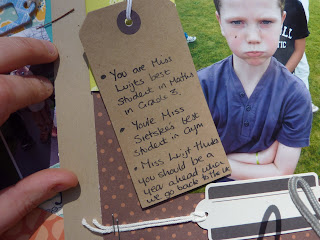 • You are Miss
Luyt's best
student in Maths
in Grade 3.
• You're Miss
Sietske's best
student in Gym
• Miss Luyt thinks
you should be a
year ahead when
we go back to the